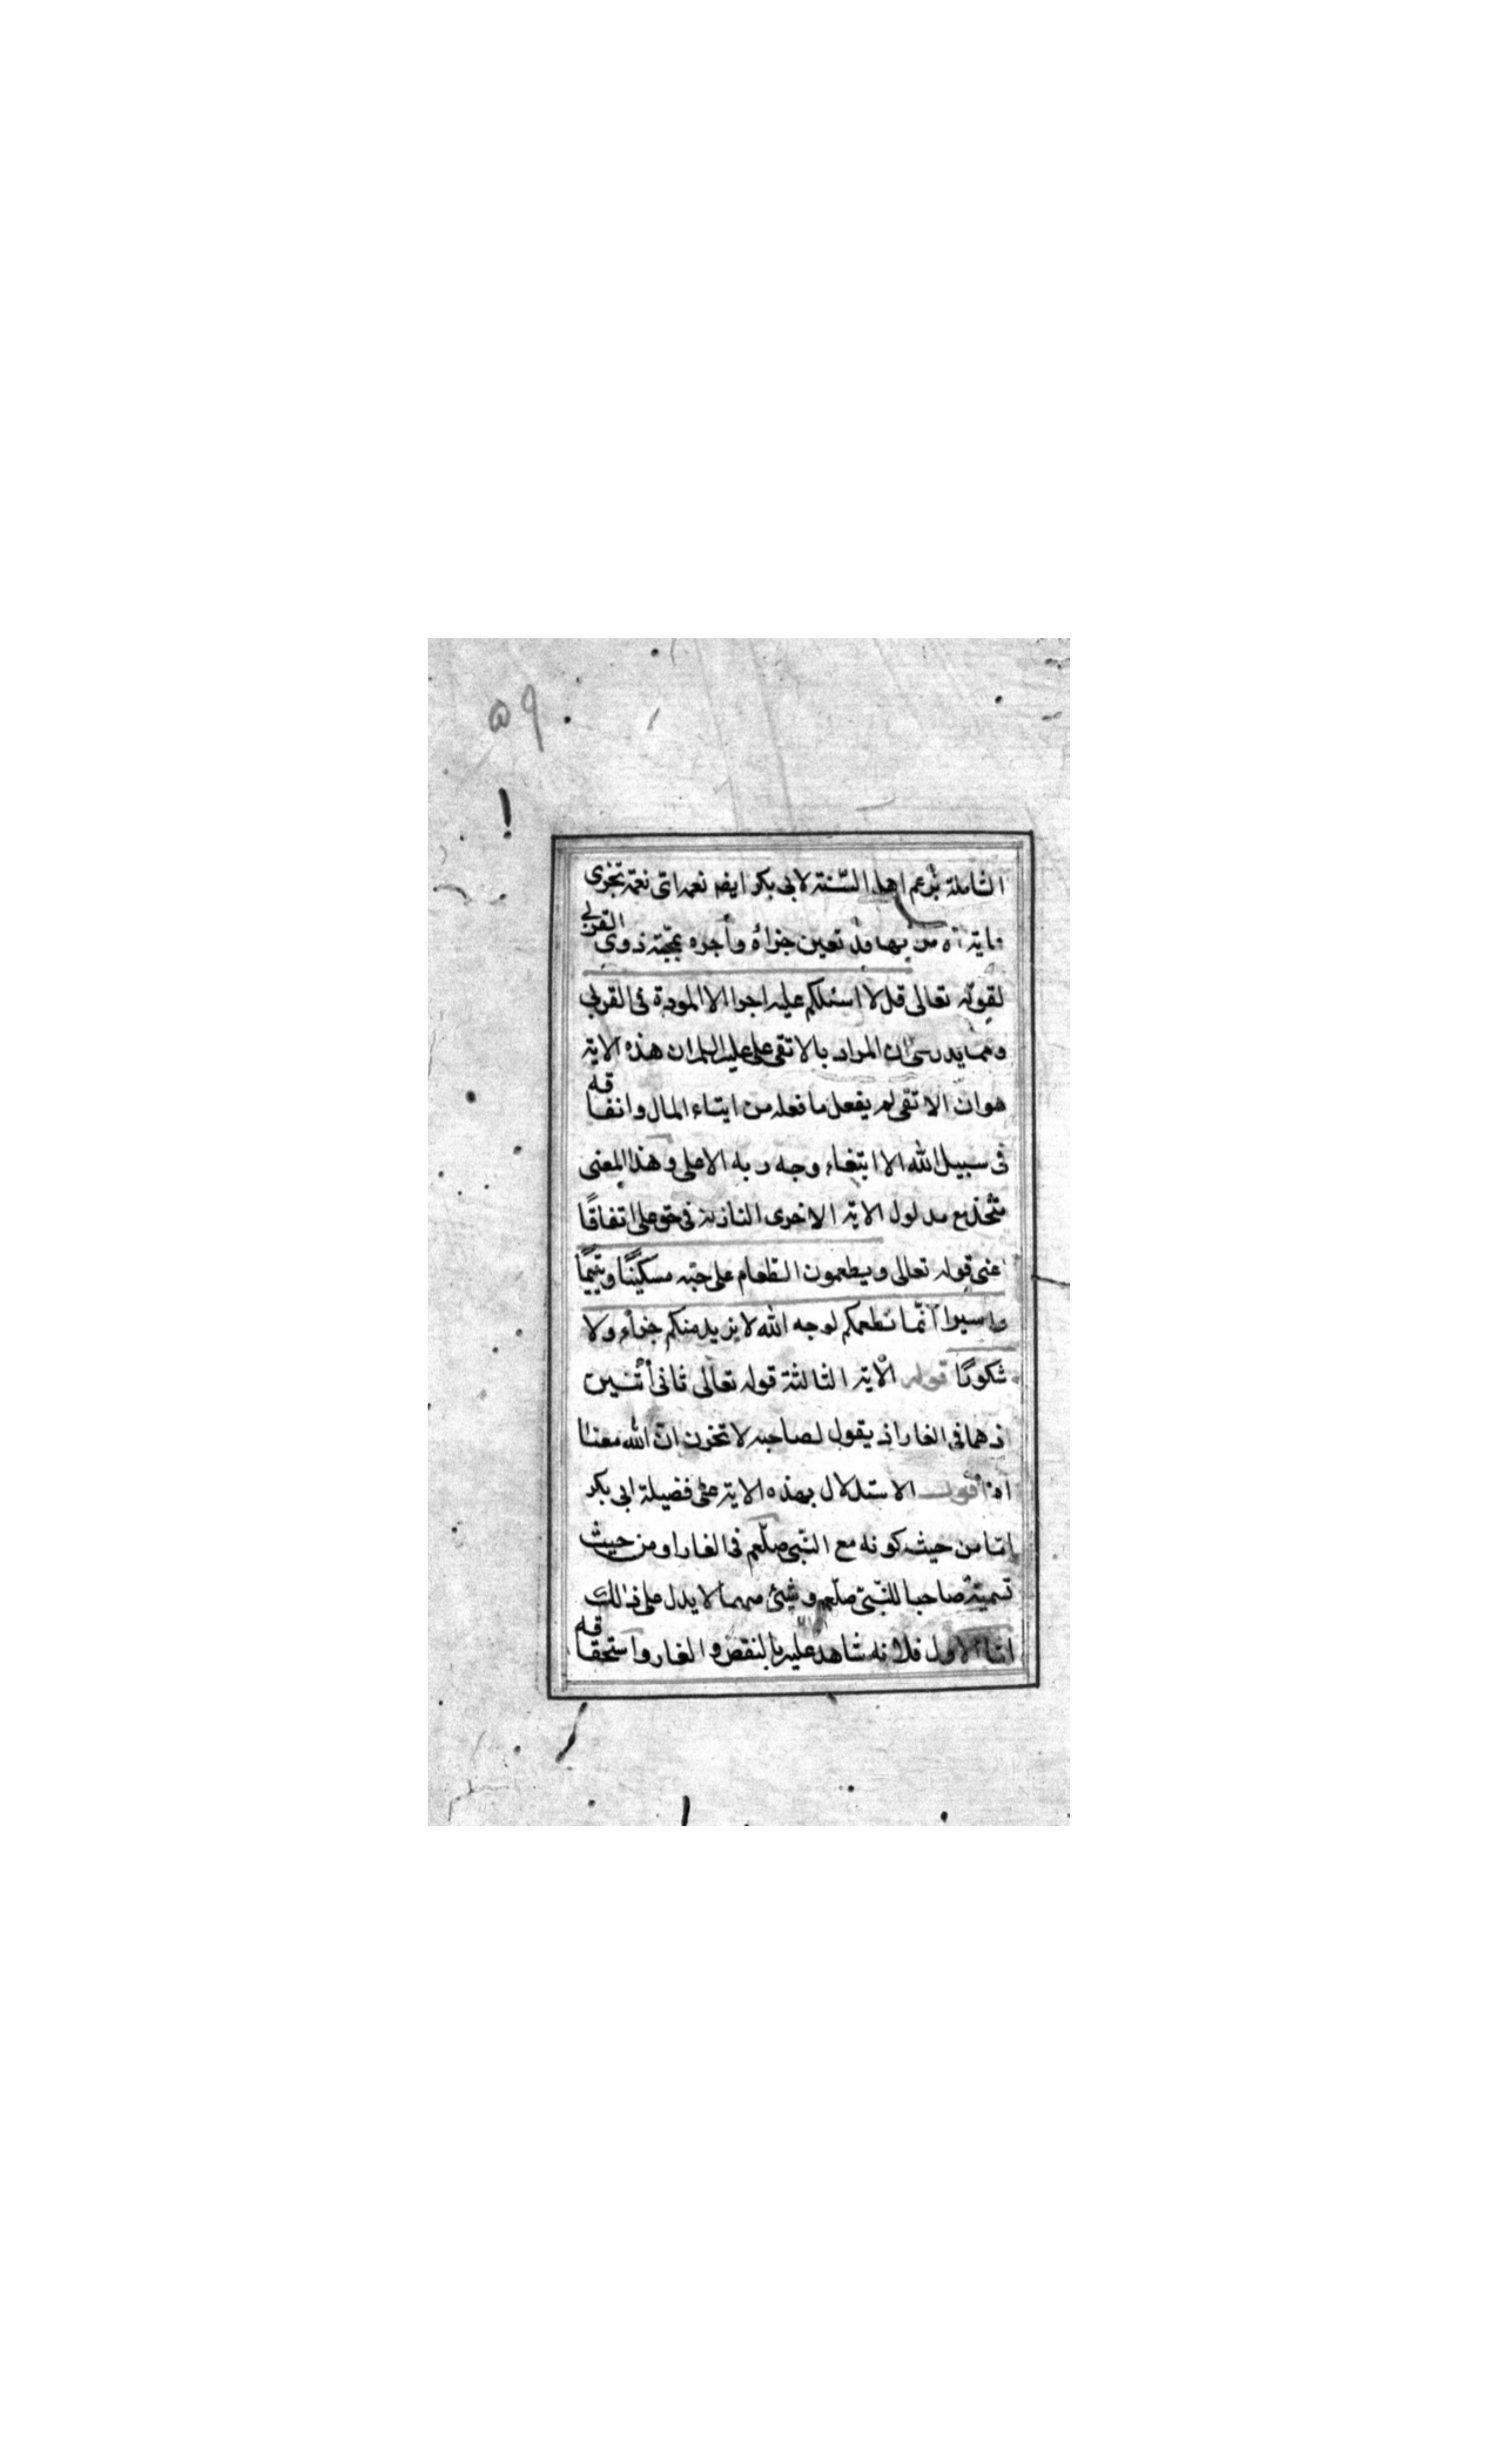 ۵۹
الشاملة بزعم اهل السّنة لابى بكر ايضا نعم اتى نعمة تجزى
بها قد تعين جزاؤه واجره بمحبّة ذوى القربى
لقوله تعالى قل لا اسئلكم عليه اجرا الا المودة فى القربى
ان المراد بالاتقى على عليه السلم ان هذه الاية
هو ان الاتقى لم يفعل ما فعله من ايتاء المال وانفاقه
فى سبيل الله الا ابتغاء وجه ربه الاعلى وهذا المعنى
متّحد مع مدلول الاية الاخرى النازلة فى حق على اتفاقًا
اعنى قوله تعالى ويطعمون الطّعام على حبّه مسكينًا ويتيمًا
واسيرا انّما نطعمكم لوجه الله لا نريد منكم جزاء ولا
شكورًا قوله الاية الثالثة قوله تعالى ثانى اثنين
اذ هما فى الغار اذ يقول لصاحبه لا تحزن ان الله معنا
اه اقول الاستدلال بهذه الاية على فضيلة ابى بكر
امّا من حيث كونه مع النّبى صلّعم فى الغار او من حيث
تسميته صاحبا للنّبىّ صلّعم وشيئ منهما لا يدل على ذلك
امّا الاول فلانه شاهد عليه بالنقض و الغار واستحقاقه